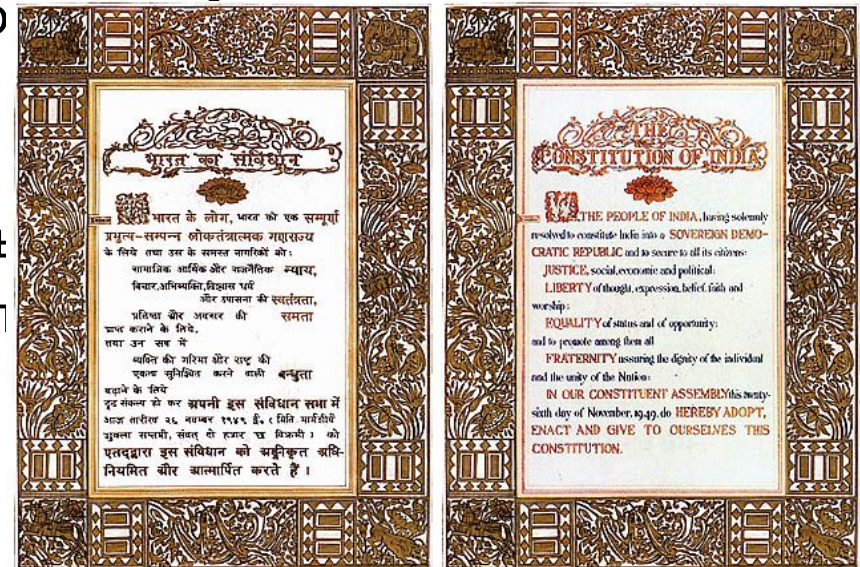 भारत का संविधान
भारत के लोग, भारत को एक सम्पूर्ण
प्रभुत्व-सम्पन्न लोकतंत्रात्मक गणराज्य
के लिये तथा उस के समस्त नागरिकों को:
सामाजिक आर्थिक और राजनैतिक न्याय,
विचार, अभिव्यक्ति, विश्वास धर्म
और उपासना की स्वतंत्रता,
प्रतिष्ठा और अवसर की समता
प्राप्त कराने के लिये,
तथा उन सब में
व्यक्ति की गरिमा और राष्ट्र की
एकता सुनिश्चित करने वाली बन्धुता
बढ़ाने के लिये
दृढ़ संकल्प हो कर अपनी इस संविधान सभा में
आज तारीख २६ नवम्बर १९४९ ई. (मिति मार्गशीर्ष
शुक्ला सप्तमी, संवत् दो हजार छ विक्रमी) को
एतद्द्वारा इस संविधान को अङ्गीकृत अधि-
नियमित और आत्मार्पित करते हैं ।
THE
CONSTITUTION OF INDIA
WE, THE PEOPLE OF INDIA, having solemnly
resolved to constitute India into a SOVEREIGN DEMO-
CRATIC REPUBLIC and to secure to all its citizens:
JUSTICE, social, economic and political;
LIBERTY of thought, expression, belief, faith and
worship;
EQUALITY of status and of opportunity;
and to promote among them all
FRATERNITY assuring the dignity of the individual
and the unity of the Nation;
IN OUR CONSTITUENT ASSEMBLY this twenty-
sixth day of November, 1949, do HEREBY ADOPT,
ENACT AND GIVE TO OURSELVES THIS
CONSTITUTION.